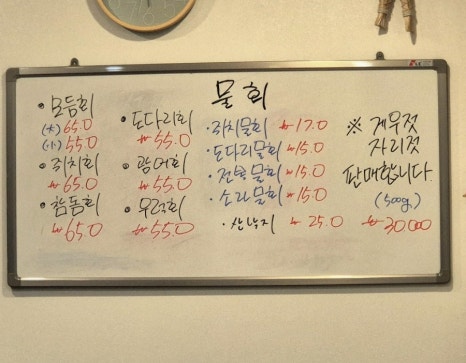 물회
• 모듬회
(大) 65.0
(小) 55.0
• 쥐치회
₩65.0
• 참돔회
₩65.0
• 도다리회
₩55.0
• 광어회
₩55.0
• 우럭회
₩55.0
• 쥐치물회 ₩17.0
• 도다리물회 ₩15.0
• 전복물회 ₩15.0
• 소라물회 ₩15.0
• 산낙지 ₩25.0
※ 게우젓
자리젓
판매합니다
(500g)
₩30000